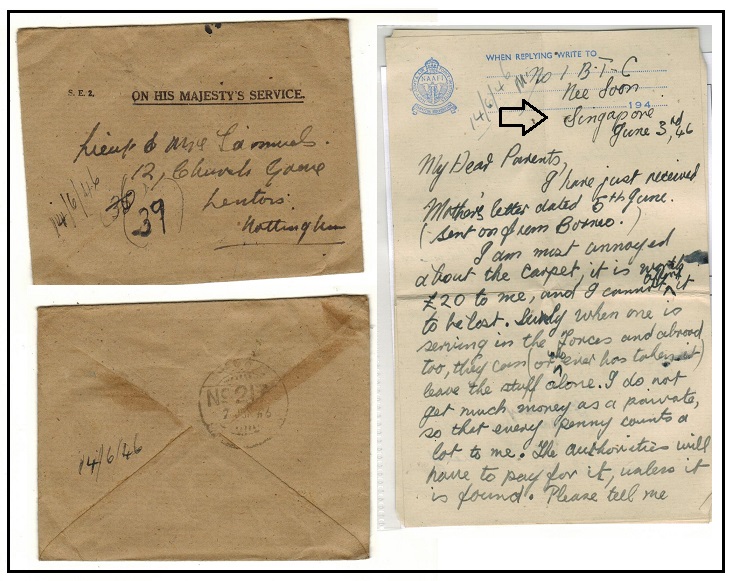 S.E.2.
ON HIS MAJESTY'S SERVICE.
Lieut & Mrs Samuels
12, Church Grove
Lenton
Nottingham
14/6/46
39
No 217
14/6/46
NAAFI
WHEN REPLYING WRITE TO
No 1 B.T.C
Nee Soon
194
Singapore
June 3rd, 46
14/6/46
My Dear Parents,
I have just received
Mother's letter dated 5th June.
(sent on from Borneo.)
I am most annoyed
about the carpet, it is worth
£20 to me, and I cannot afford it
to be lost. Surely when one is
serving in the forces and abroad
too, they can (or who ever has taken it)
leave the stuff alone. I do not
get much money as a private,
so that every penny counts a
lot to me. The authorities will
have to pay for it, unless it
is found. Please tell me